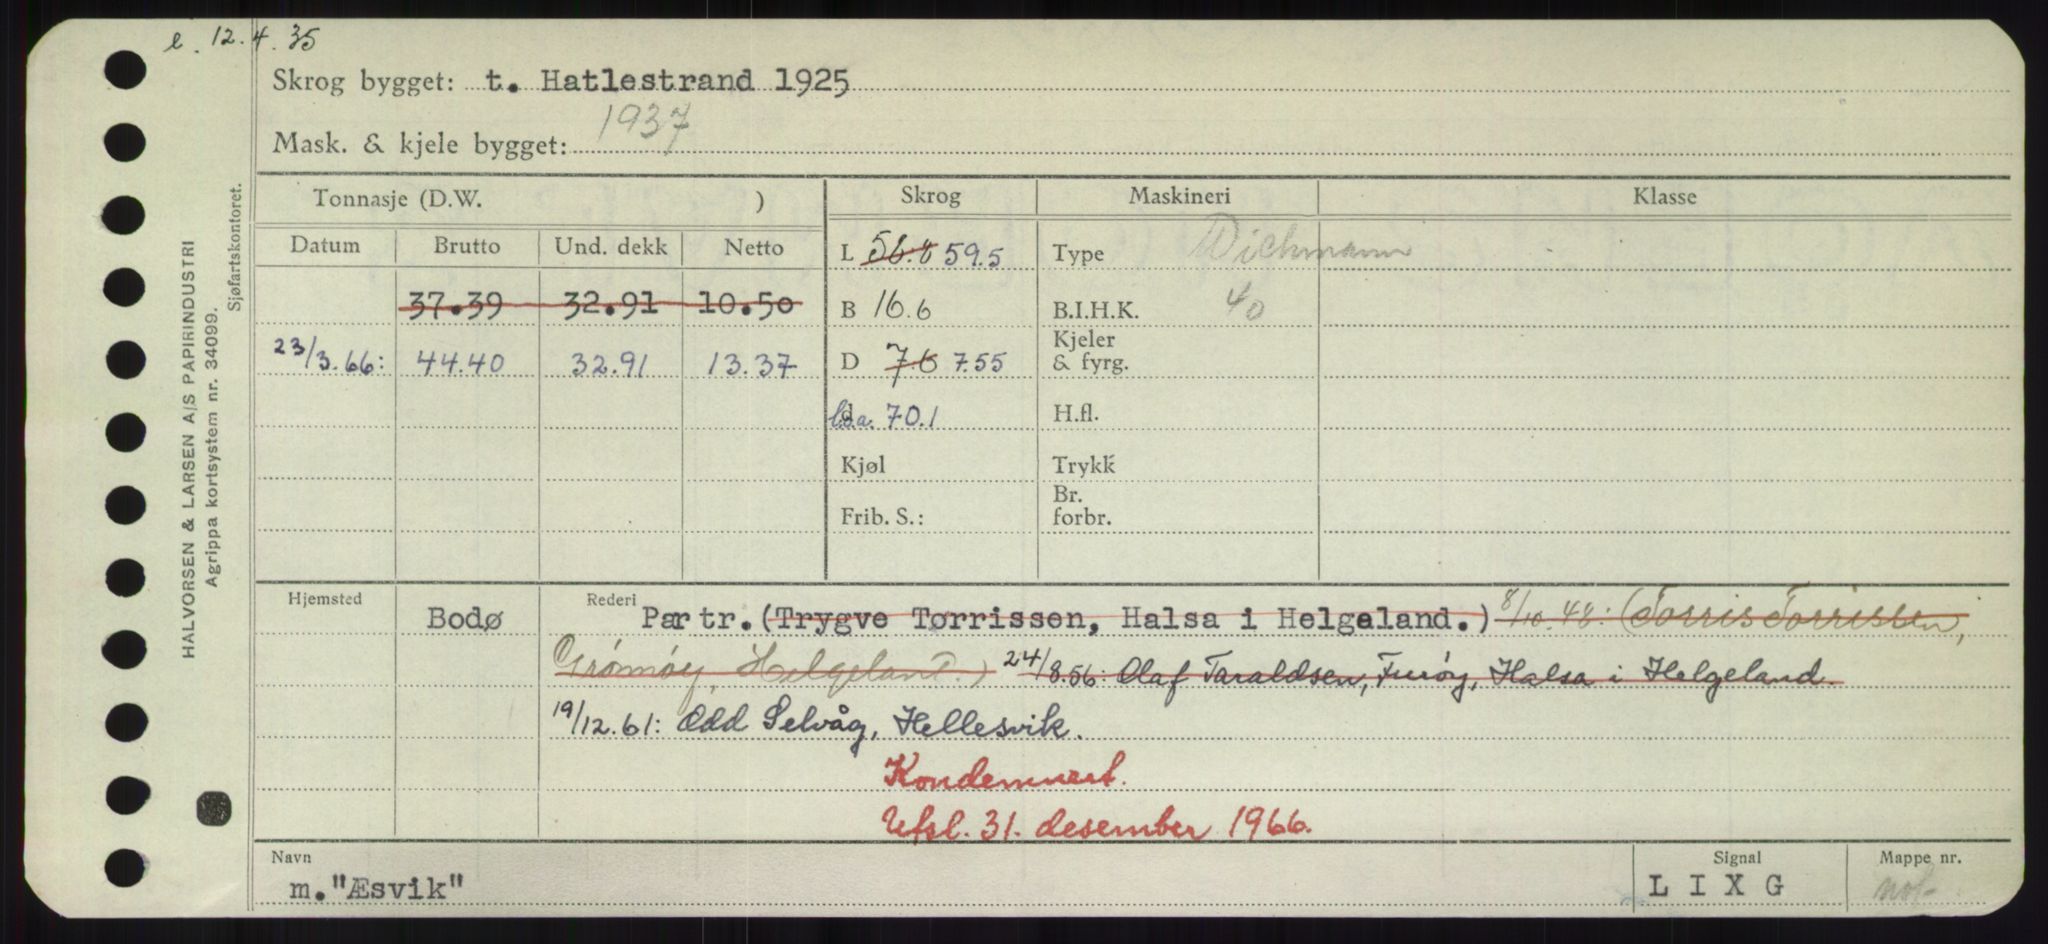 e. 12.4.35
Skrog bygget: t. Hatlestrand 1925
Mask. & kjele bygget: 1937
HALVORSEN & LARSEN A/S PAPIRINDUSTRI
Agrippa kortsystem nr. 34099.
Sjøfartskontoret.
Tonnasje (D.W. ) Skrog Maskineri Klasse
Datum Brutto Und. dekk Netto
L 56.8 59.5 Type Wichmann
37.39 32.91 10.50 B 16.6 B.I.H.K. 40
23/3.66: 44.40 32.91 13.37 D 7.6 7.55 Kjeler & fyrg.
l.o.a. 70.1 H.fl.
Kjøl Trykk
Frib. S.: Br. forbr.
Hjemsted Bodø Rederi Partr. (Trygve Torrissen, Halsa i Helgeland.) 8/10.48: (Torris Torrissen,
Grømøy, Helgeland.) 24/8.56: Olaf Taraldsen, Furøy, Halsa i Helgeland.
19/12.61: Odd Selvåg, Hellesvik.
Kondemnert.
Utsl. 31. desember 1966.
Navn Signal Mappe nr.
m. "Æsvik" L I X G not